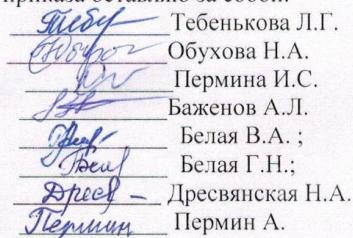 приказа оставляю за собой.
Тебенькова Л.Г.
Обухова Н.А.
Пермина И.С.
Баженов А.Л.
Белая В.А. ;
Белая Г.Н.;
Дресв Дресвянская Н.А.
Пермин Пермин А.